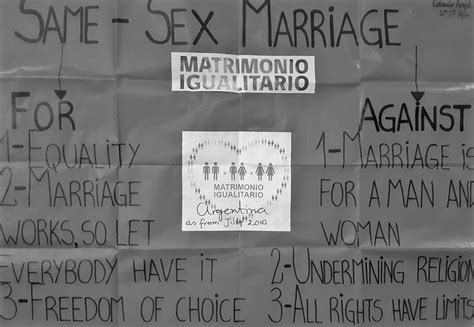 SAME-SEX MARRIAGE
MATRIMONIO
IGUALITARIO
FOR
1-EQUALITY
2-MARRIAGE
WORKS, SO LET
EVERYBODY HAVE IT
3-FREEDOM OF CHOICE
MATRIMONIO
IGUALITARIO
Argentina
as from July 2010
AGAINST
1-MARRIAGE IS
FOR A MAN AND
WOMAN
2-UNDERMINING RELIGION
3-ALL RIGHTS HAVE LIMITS